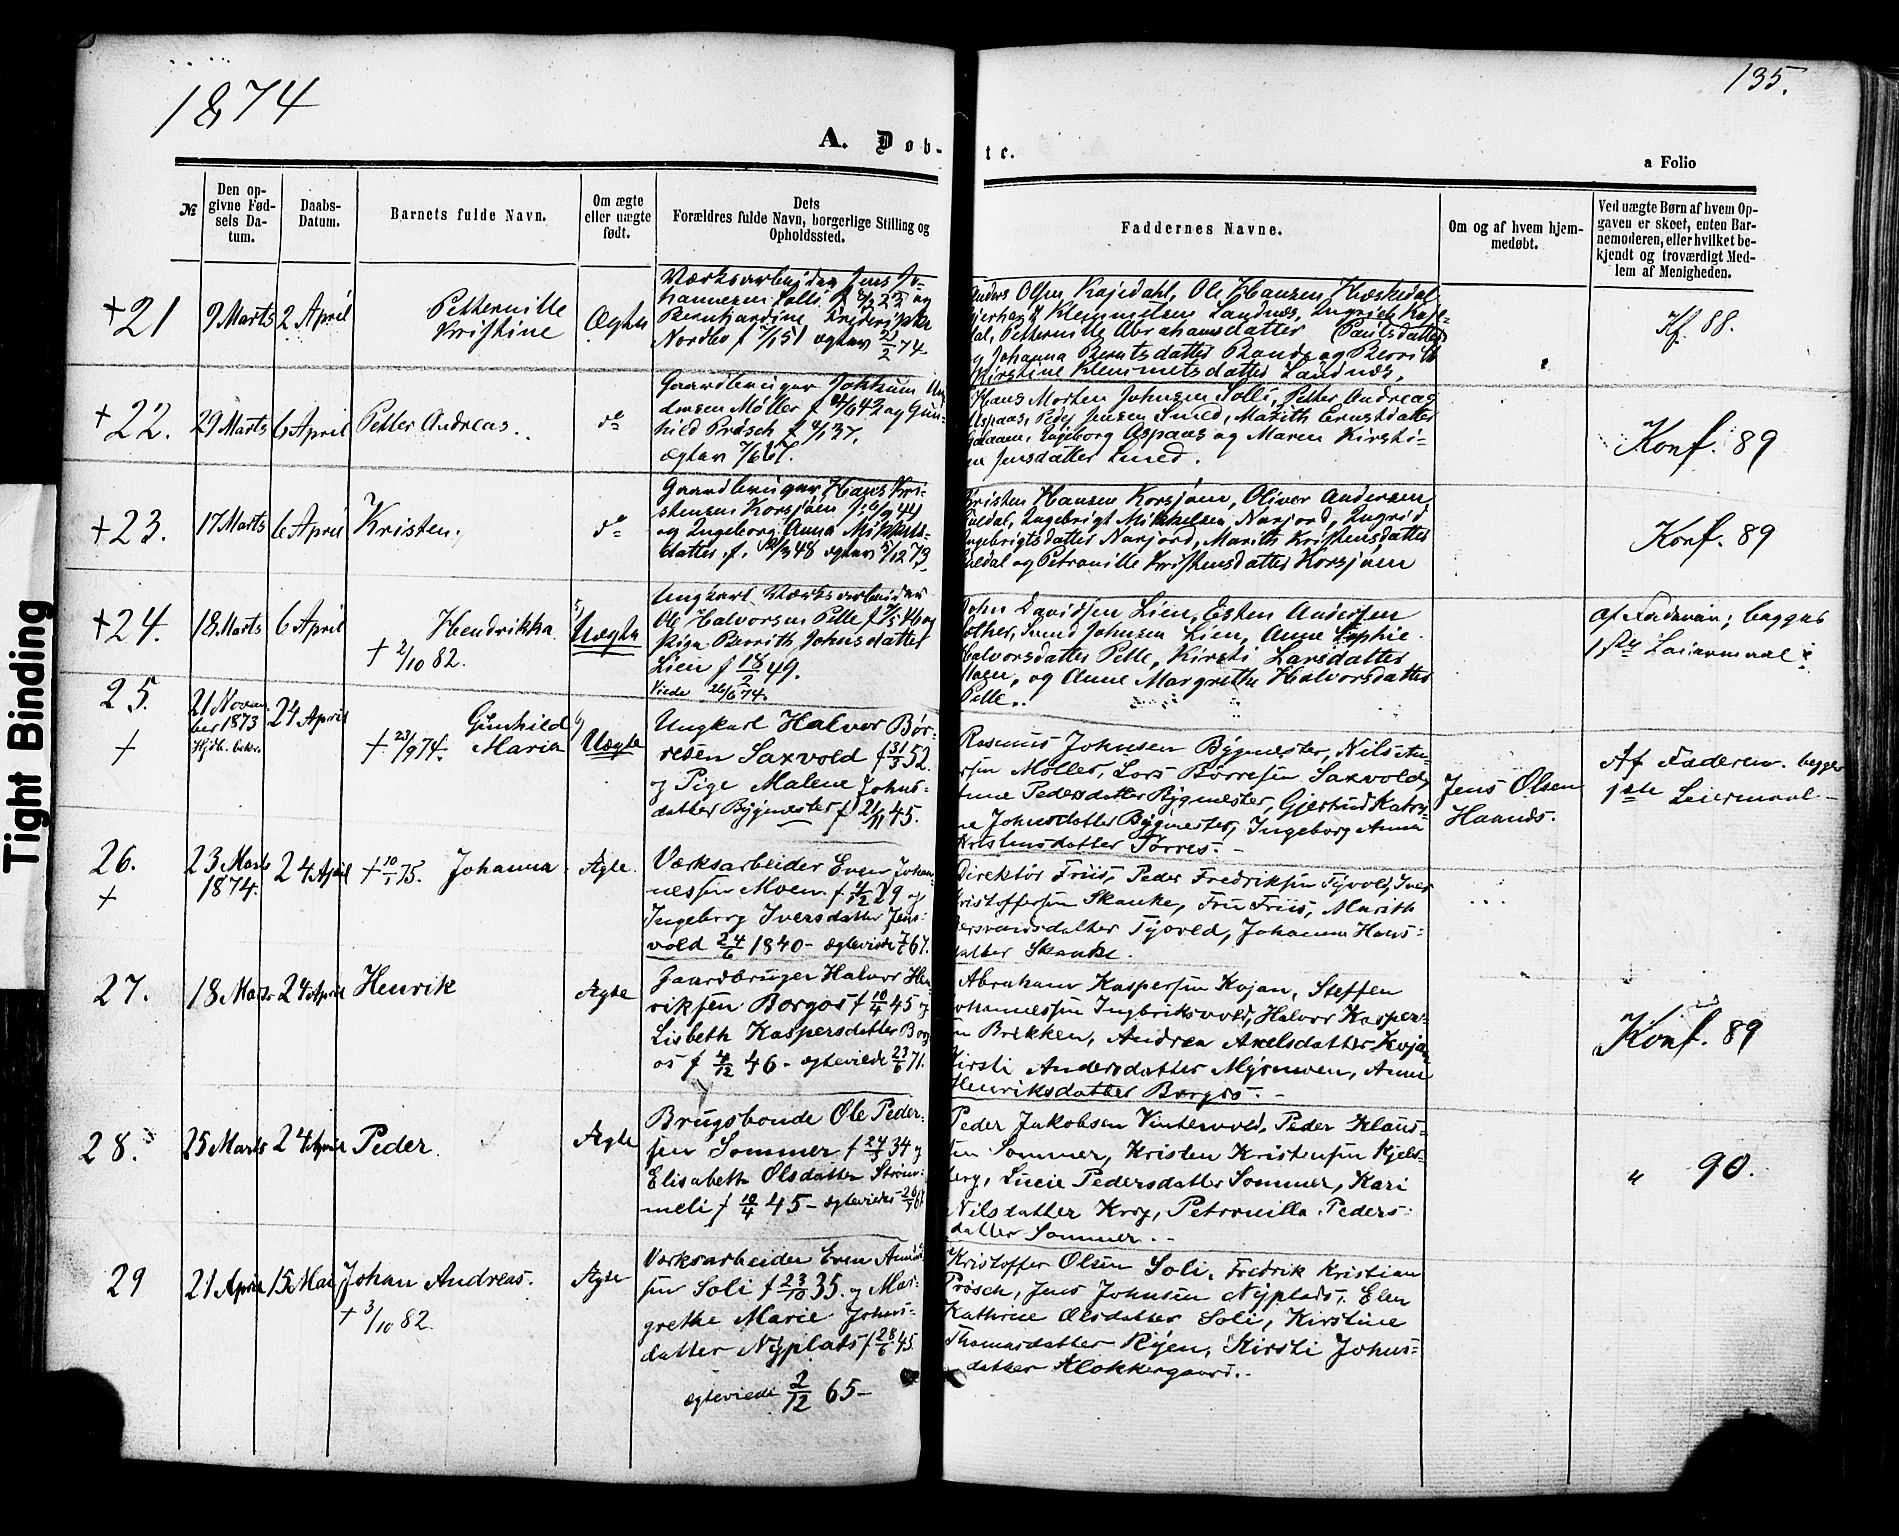 1874
135.
A. Døb-
te.
a Folio
№
Den op-
givne Fød-
sels Da-
tum.
Daabs-
Datum.
Barnets fulde Navn.
Om ægte
eller uægte
født.
Dets
Forældres fulde Navn, borgerlige Stilling og
Opholdssted.
Faddernes Navne.
Om og af hvem hjem-
medøbt.
Ved uægte Børn af hvem Op-
gaven er skeet, enten Bar-
nemoderen, eller hvilket be-
kjendt og troværdigt Med-
lem af Menigheden.
+ 21
9 Marts
2 April
Petternille
Kristine
Ægte
Værksarbeider Jens Jo-
hannesen Solli og
Bernhardine Frederikke
Nordbo f 51 ægtev 74
Anders Olsen Kajedahl, Ole Hansen
Klemmetsen Landnes, Ingrid
Petternille Abrahamsdatter (Paulsdatter
og Johanna Berntsdatter Rand og Berrith
Kirstine Klemmetsdatter Landnes.
Kf. 88.
+ 22.
29 Marts
6 April
Petter Andreas.
do
Gaardbruger Jokkum An-
dersen Møller f 42 og Gun-
hild Prøsch f 37.
ægtev 67.
Hans Morten Johnsen Solli, Petter Andreas
Aspaas, Peder Jensen Smed, Marith Ernstdatter
Ingeborg Aspaas og Maren Kirsti-
ne Jensdatter Smed.
Konf. 89
+ 23.
17 Marts
6 April
Kristen.
do
Gaardbruger, Hans Kri-
stensen Korsjøen f. 44
og Ingeborg Anna Mikkels-
datter f. 48 ægtev 5/12 73.
Kristen Hansen Korsjøen, Oliver Andersen
Ingebrigt Mikkelsen Narjord, Ingrid
Ingebrigtsdatter Narjord, Marith Kristensdatter
og Petronille Kristensdatter Korsjøen
Konf. 89
+ 24.
18 Marts
6 April
Hendrikka.
+ 2/10 82.
Uægte
Ungkarl Værksarbeider
Ole Halvorsen Pelle f 46 og
Pige Berrith Johnsdatter
Lien f 18/2 49.
Viede 26/6 74.
John Davidsen Lien, Esten Andersen
Svend Johnsen Lien, Anne Sophie
Halvorsdatter Pelle, Kirsti Larsdatter
Moen, og Anne Margrethe Halvorsdatter
Pelle.
af Faderen; begges
1ste Leiermaal
25.
+
21 Novem-
ber 1873
Hjdb. bekr.
24 April
Gunhild
Maria
+ 23/9 74.
Uægte
Ungkarl Halvor Bør-
resen Saxvold f 31/3 52.
og Pige Malene Johns-
datter Bygmester f 21/11 45.
Rasmus Johnsen Bygmester, Nils An-
dersen Møller, Lars Børresen Saxvold,
Anne Pedersdatter Bygmester, Gjertrud Katri-
ne Johnsdatter Bygmester, Ingeborg Anna
Kristensdatter Torres.
Jens Olsen
Haands.
Af Faderen. begges
1ste Leiermaal
26.
+
23 Marts
1874.
24 April
+ 10/1 75. Johanna
Ægte.
Værksarbeider Even Johan-
nessen Moen f 4/12 29 og
Ingeborg Iversdatter Jens-
vold 24/6 1840 - ægteviede 67.
Direktør Friis, Peder Fredriksen Tyvold, Iver
Kristoffersen Skanke, Fru Friis, Marith
Tyvold, Johanna Hans-
datter Skanke.
27.
18 Marts
24 April
Henrik
Ægte
Gaardbruger Halvor Hen-
riksen Borgos f 10/4 45 og
Lisbeth Kaspersdatter Borg-
os f 4/12 46 - ægteviede 23/6 71.
Abraham Kaspersen Kojan, Steffen
Johannessen Ingbriksvold, Halvor Kasper-
sen Brekken, Andrea Axelsdatter Kojan
Kirsti Andersdatter Myrmoen, Anne
Henriksdatter Borgos.
Konf. 89
28.
25 Marts
24 April
Peder.
Ægte
Brugsbonde Ole Peder-
sen Sommer f 24/3 34 og
Elisabeth Olsdatter Strøm-
meli f 10/4 45 - ægteviede
Peder Jakobsen Vintervold, Peder Klaus-
sen Sommer, Kristen Kristensen Kjels-
berg, Lucie Pedersdatter Sommer, Kari
Nilsdatter Krog, Petronilla Peders-
datter Sommer.
" 90.
29
21 April
15 Mai
Johan Andreas.
+ 3/10 82.
Ægte
Værksarbeider Even Amund-
sen Soli f 23/10 35. og Mar-
grethe Marie Johns-
datter Nyplads f 28/6 45.
ægteviede 2/12 65 -
Kristoffer Olsen Soli, Fredrik Kristian
Prøsch, Jens Johnsen Nyplads, Elen
Kathrine Olsdatter Soli, Kirstine
Thomasdatter Ryen, Kirsti Johns-
datter Klokkergaard.
Tight Binding